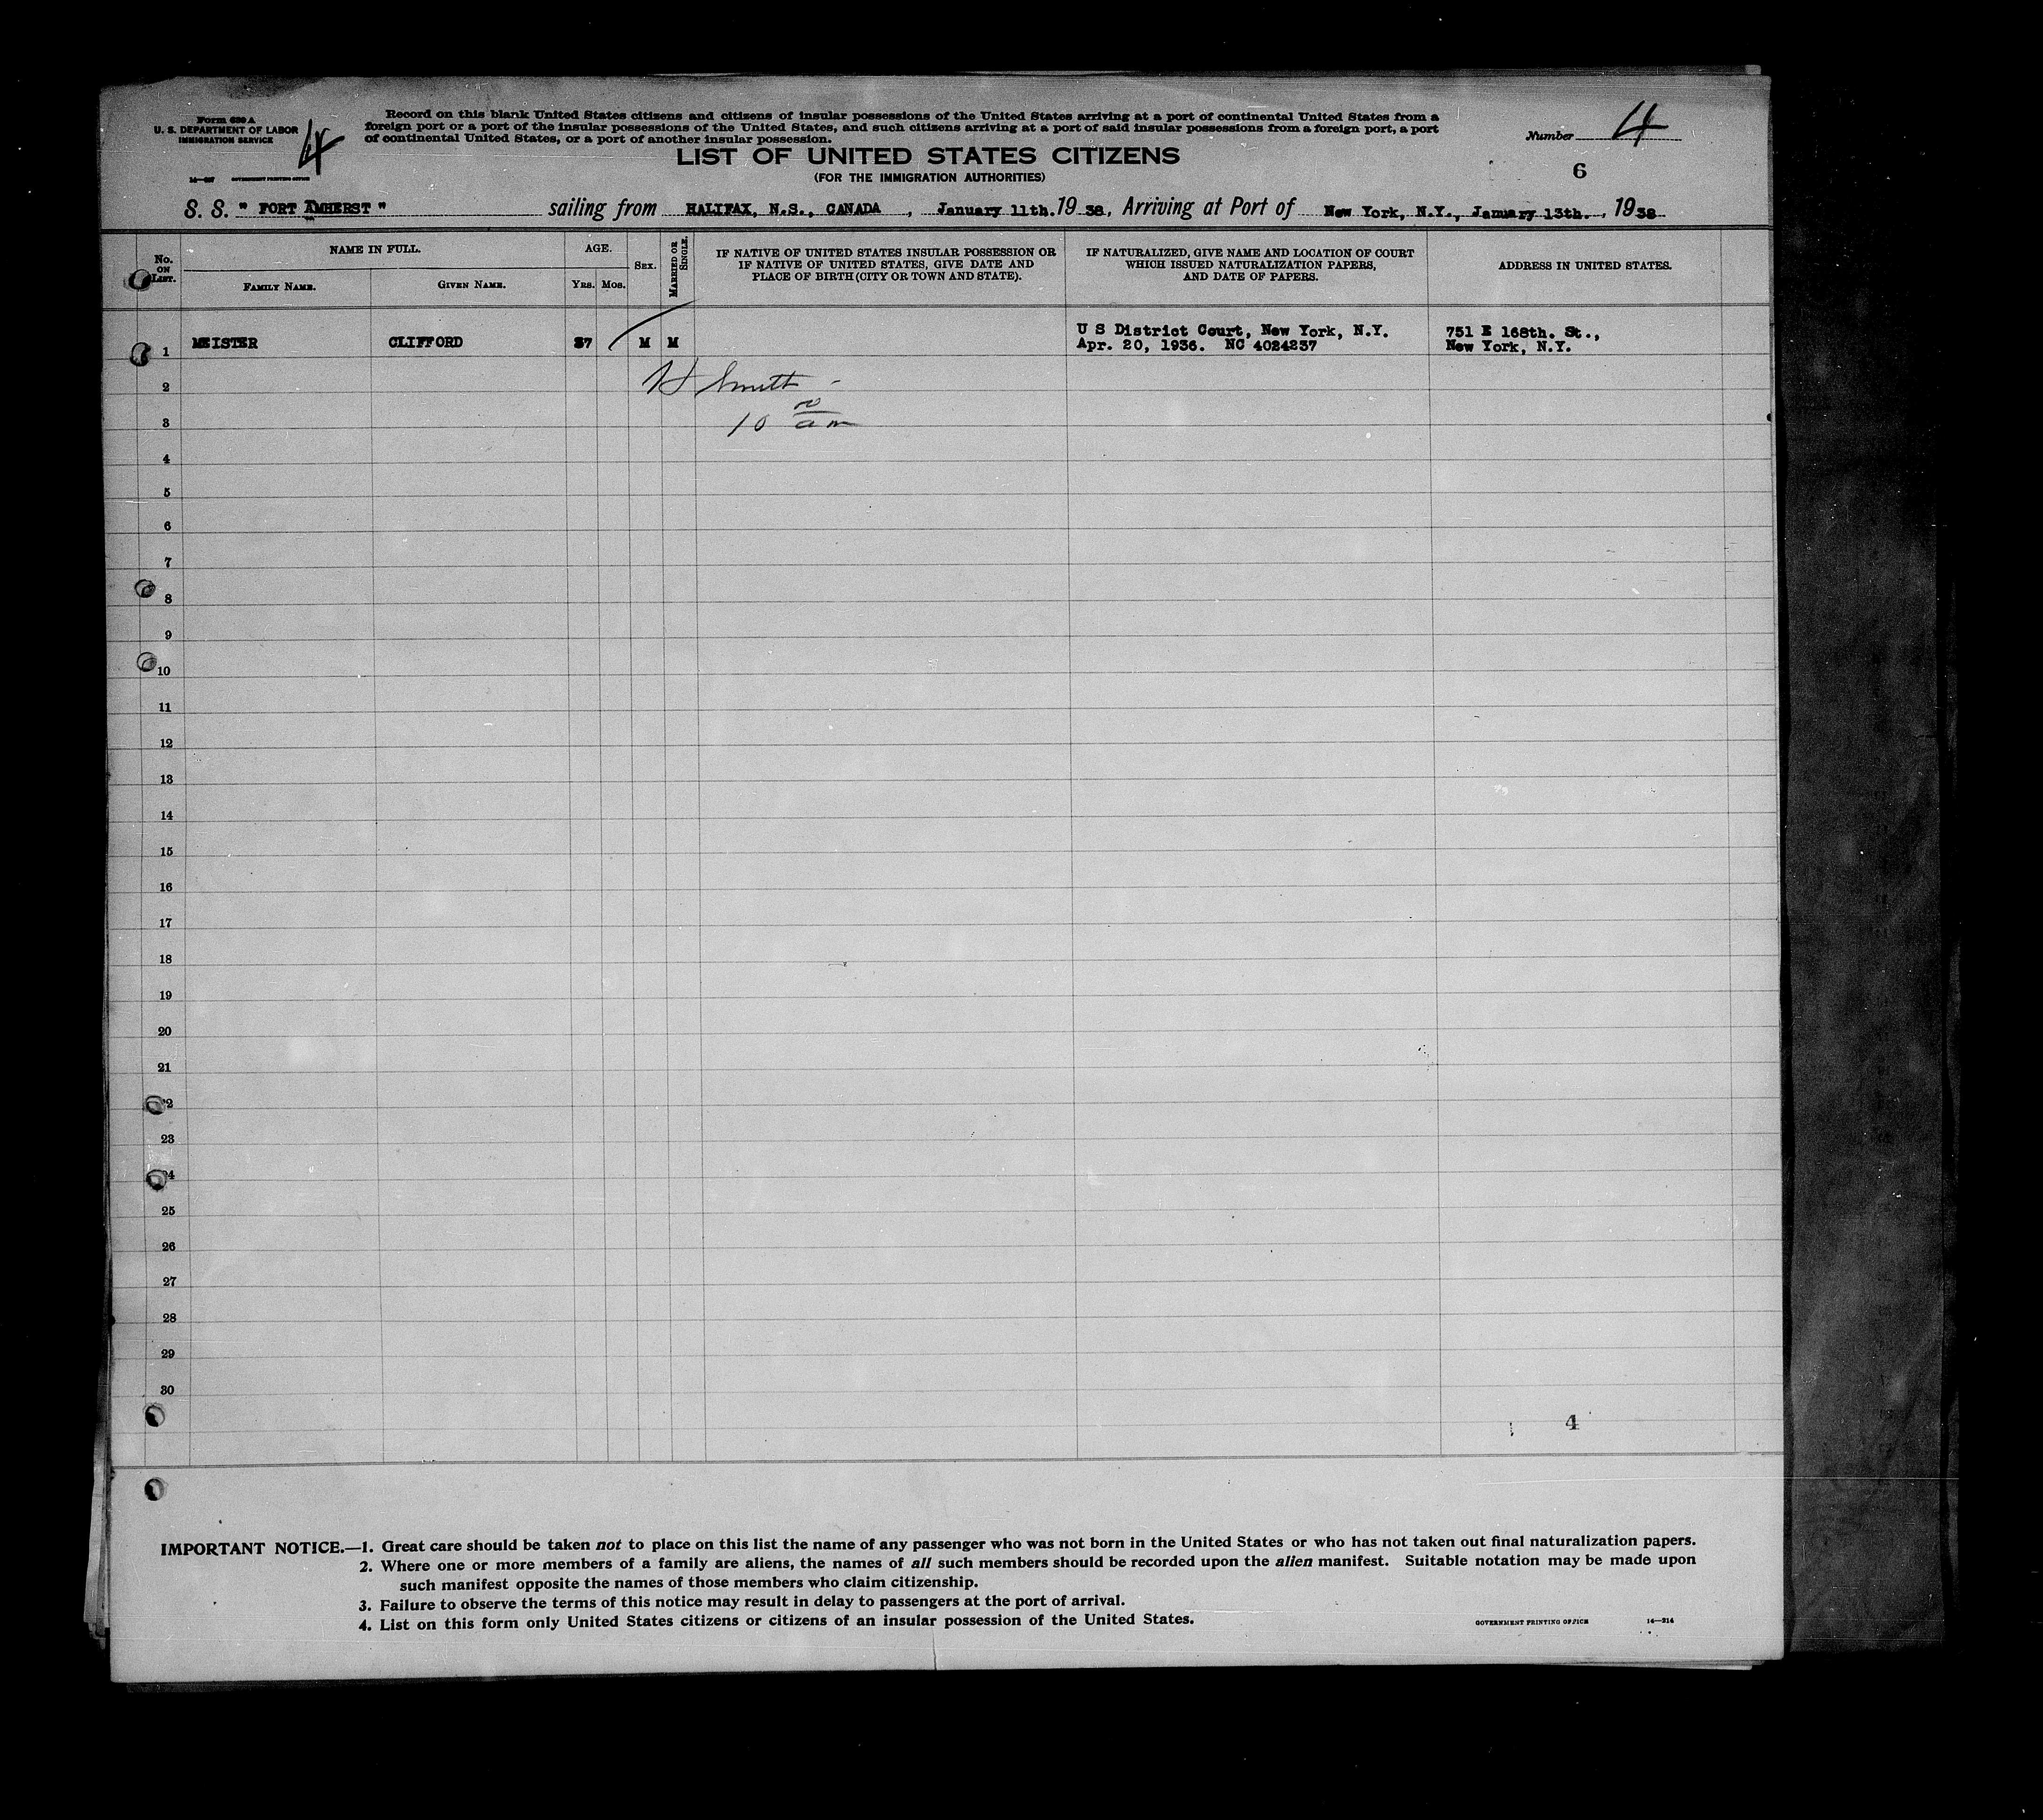 Form 630 A
U. S. DEPARTMENT OF LABOR
IMMIGRATION SERVICE
4
Record on this blank United States citizens and citizens of insular possessions of the United States arriving at a port of continental United States from a
foreign port or a port of the insular possessions of the United States, and such citizens arriving at a port of said insular possessions from a foreign port, a port
of continental United States, or a port of another insular possession.
Number 4
LIST OF UNITED STATES CITIZENS
(FOR THE IMMIGRATION AUTHORITIES)
6
GOVERNMENT PRINTING OFFICE
S. S. " FORT AMHERST " sailing from HALIFAX, N.S., CANADA, January 11th. 19 38, Arriving at Port of New York, N.Y., January 13th., 19 38
No. ON LIST.
NAME IN FULL.
FAMILY NAME. GIVEN NAME.
AGE.
YRS. MOS.
SEX.
MARRIED OR SINGLE.
IF NATIVE OF UNITED STATES INSULAR POSSESSION OR
IF NATIVE OF UNITED STATES, GIVE DATE AND
PLACE OF BIRTH (CITY OR TOWN AND STATE).
IF NATURALIZED, GIVE NAME AND LOCATION OF COURT
WHICH ISSUED NATURALIZATION PAPERS,
AND DATE OF PAPERS.
ADDRESS IN UNITED STATES.
1 MEISTER CLIFFORD 37 M M
U S District Court, New York, N.Y.
Apr. 20, 1936. NC 4024237
751 E 168th. St.,
New York, N.Y.
2 H Smith -
3 10 am
4
5
6
7
8
9
10
11
12
13
14
15
16
17
18
19
20
21
22
23
24
25
26
27
28
29
30
4
IMPORTANT NOTICE.—1. Great care should be taken not to place on this list the name of any passenger who was not born in the United States or who has not taken out final naturalization papers.
2. Where one or more members of a family are aliens, the names of all such members should be recorded upon the alien manifest. Suitable notation may be made upon
such manifest opposite the names of those members who claim citizenship.
3. Failure to observe the terms of this notice may result in delay to passengers at the port of arrival.
4. List on this form only United States citizens or citizens of an insular possession of the United States.
GOVERNMENT PRINTING OFFICE 14—214